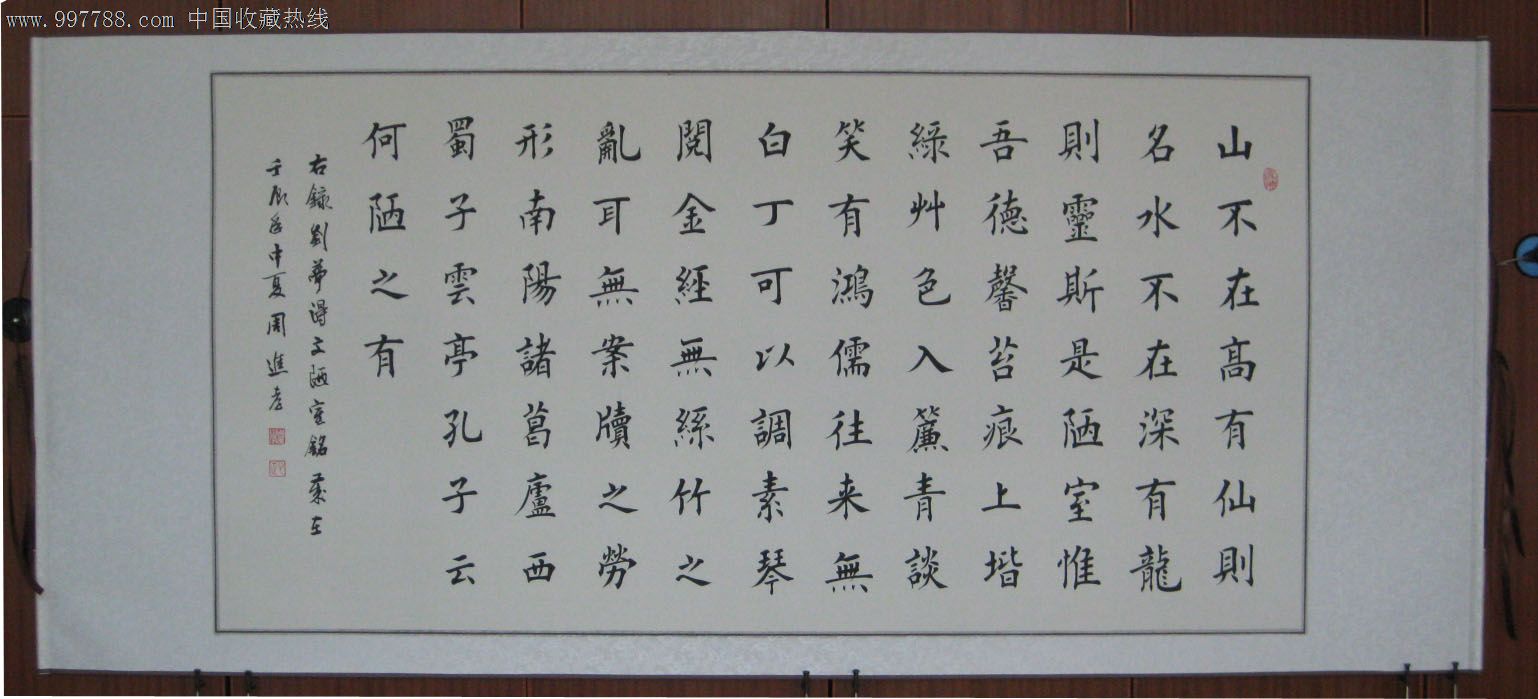 www.997788.com 中国收藏热线
山不在高有仙則
名水不在深有龍
則靈斯是陋室惟
吾德馨苔痕上堦
綠艸色入簾青談
笑有鴻儒往来無
白丁可以調素琴
閱金經無絲竹之
亂耳無案牘之勞
形南陽諸葛廬西
蜀子雲亭孔子云
何陋之有
右錄劉夢得文陋室銘歲在
壬辰年中夏周進